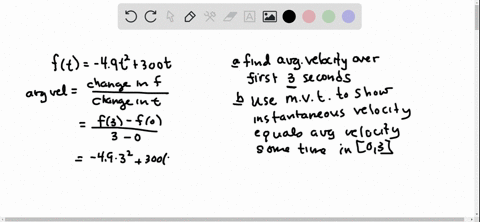 f(t) = -4.9t² + 300t
avg vel = change in f / change in t
= f(3) - f(0) / 3 - 0
= -4.9·3² + 300(
a find avg. velocity over
first 3 seconds
b use m.v.t. to show
instantaneous velocity
equals avg velocity
some time in [0,3]